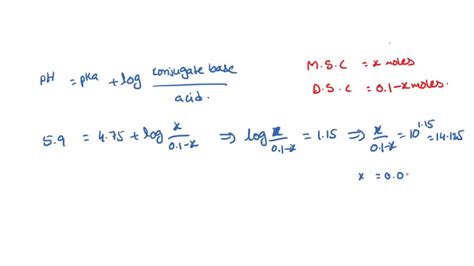 pH = pKa + log conjugate base / acid.
M.S.C = x moles
D.S.C = 0.1-x moles.
5.9 = 4.75 + log x/0.1-x ⇒ log x/0.1-x = 1.15 ⇒ x/0.1-x = 10^1.15 = 14.125
x = 0.0